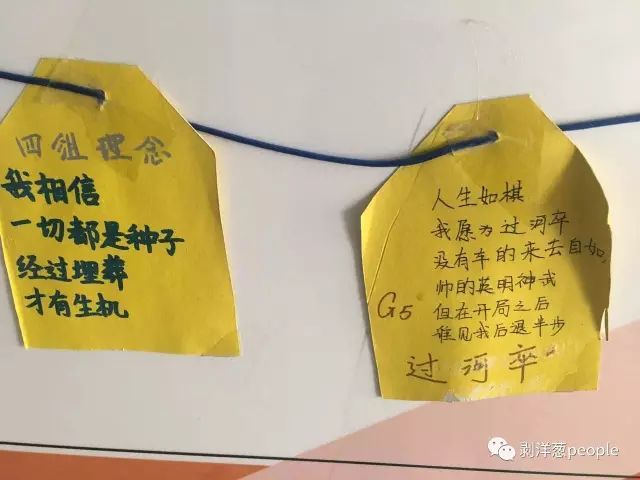 四组理念
我相信
一切都是种子
经过埋葬
才有生机
人生如棋
我愿为过河卒
没有车的来去自如,
帅的英明神武
但在开局之后
谁见我后退半步
G5
过河卒
剥洋葱people